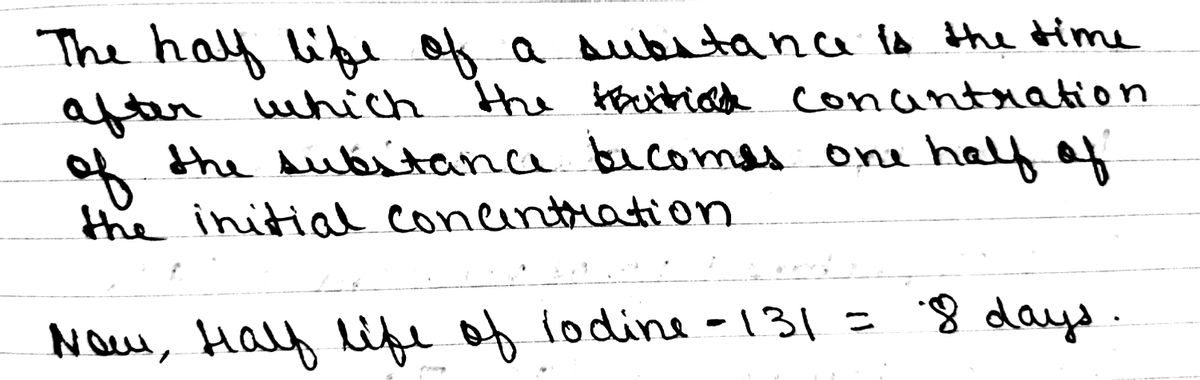 The half life of a substance is the time
after which the concentration
of the substance becomes one half of
the initial concentration
Now, Half life of iodine-131 = 8 days.